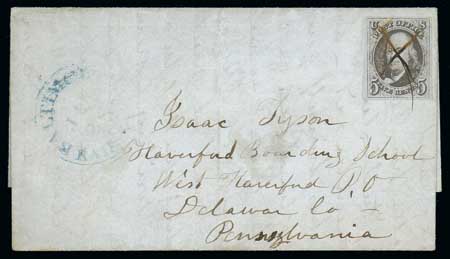 POST OFFICE
5 5
FIVE CENTS
Isaac Tyson
Haverford Boarding School
West Haverford P.O
Delawar Co –
Pennsylvania